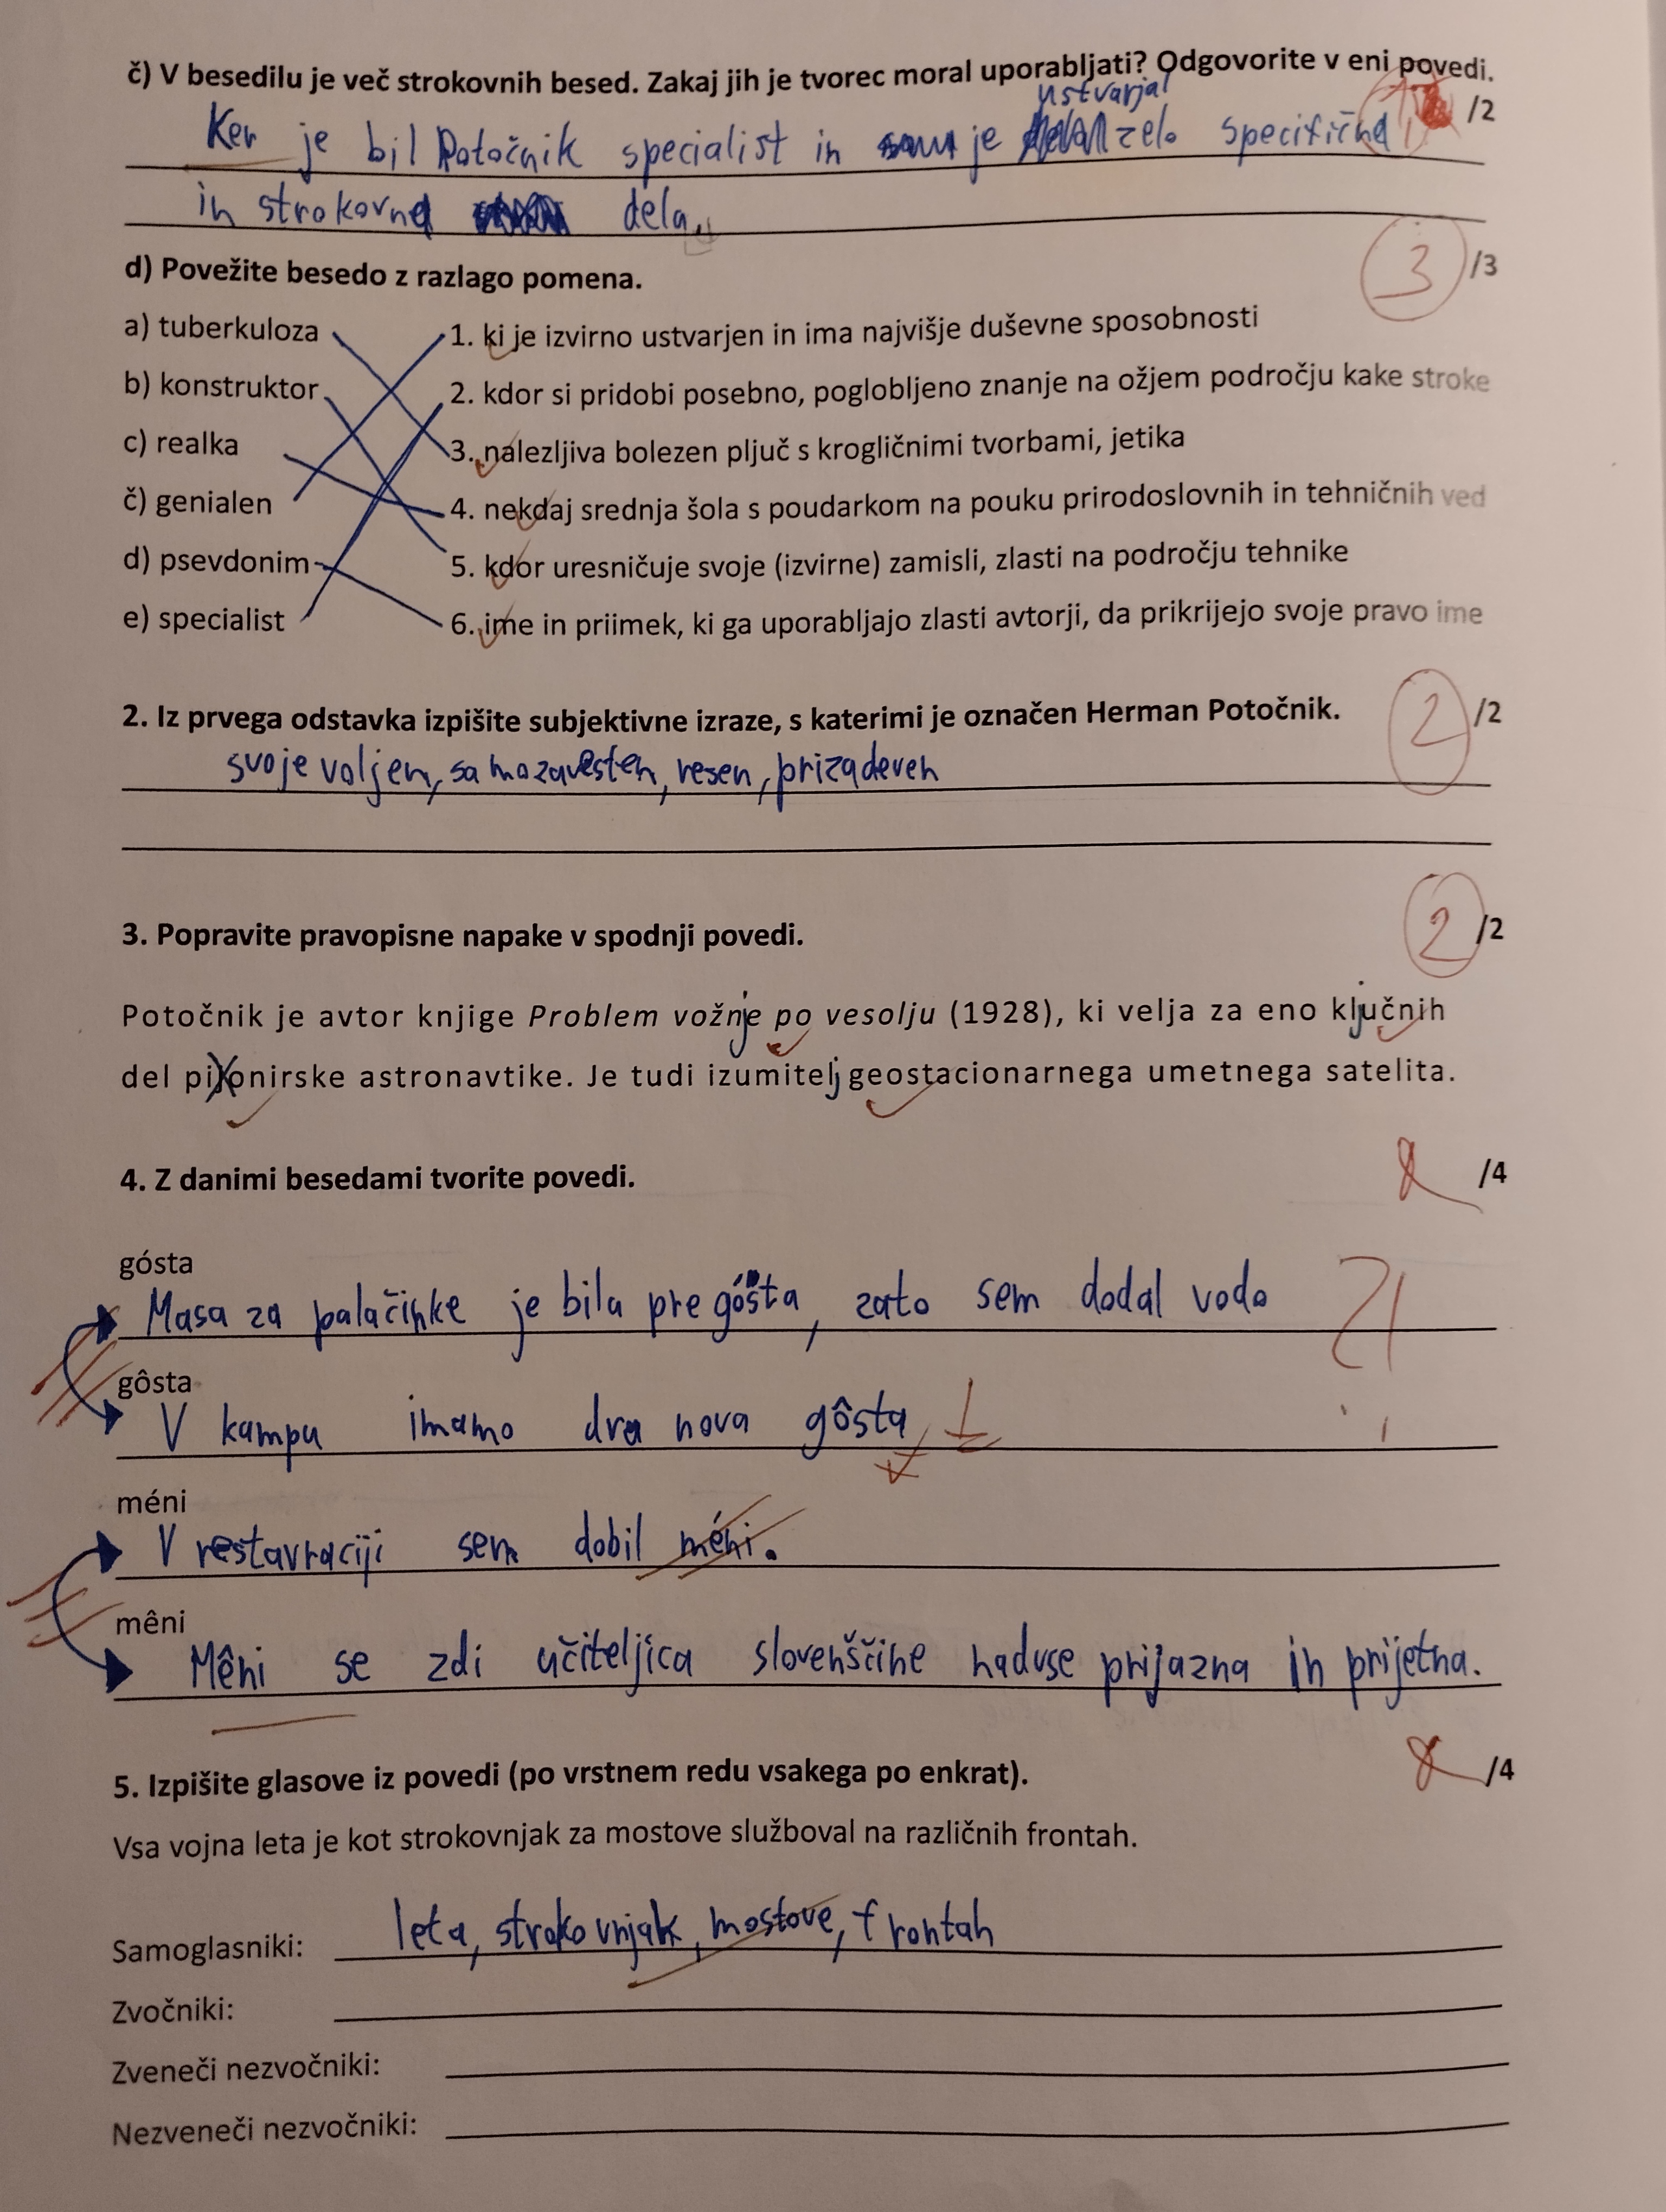 č) V besedilu je več strokovnih besed. Zakaj jih je tvorec moral uporabljati? Odgovorite v eni povedi.
/2
ustvarjal
Ker je bil Potočnik specialist in je zelo specifična
in strokovna dela.
d) Povežite besedo z razlago pomena.
3 /3
a) tuberkuloza
1. ki je izvirno ustvarjen in ima najvišje duševne sposobnosti
b) konstruktor
2. kdor si pridobi posebno, poglobljeno znanje na ožjem področju kake stroke
c) realka
3. nalezljiva bolezen pljuč s krogličnimi tvorbami, jetika
č) genialen
4. nekdaj srednja šola s poudarkom na pouku prirodoslovnih in tehničnih ved
d) psevdonim
5. kdor uresničuje svoje (izvirne) zamisli, zlasti na področju tehnike
e) specialist
6. ime in priimek, ki ga uporabljajo zlasti avtorji, da prikrijejo svoje pravo ime
2. Iz prvega odstavka izpišite subjektivne izraze, s katerimi je označen Herman Potočnik.
2 /2
svojevoljen, samozavesten, resen, prizadeven
3. Popravite pravopisne napake v spodnji povedi.
2 /2
Potočnik je avtor knjige Problem vožnje po vesolju (1928), ki velja za eno ključnih
del pijonirske astronavtike. Je tudi izumitelj geostacionarnega umetnega satelita.
4. Z danimi besedami tvorite povedi.
/4
gósta
Masa za palačinke je bila pregósta, zato sem dodal vodo
gôsta
V kampu imamo dva nova gôsta
méni
V restavraciji sem dobil méni.
mêni
Mêni se zdi učiteljica slovenščine nadvse prijazna in prijetna.
5. Izpišite glasove iz povedi (po vrstnem redu vsakega po enkrat).
/4
Vsa vojna leta je kot strokovnjak za mostove služboval na različnih frontah.
Samoglasniki: leta, strokovnjak, mostove, frontah
Zvočniki:
Zveneči nezvočniki:
Nezveneči nezvočniki: